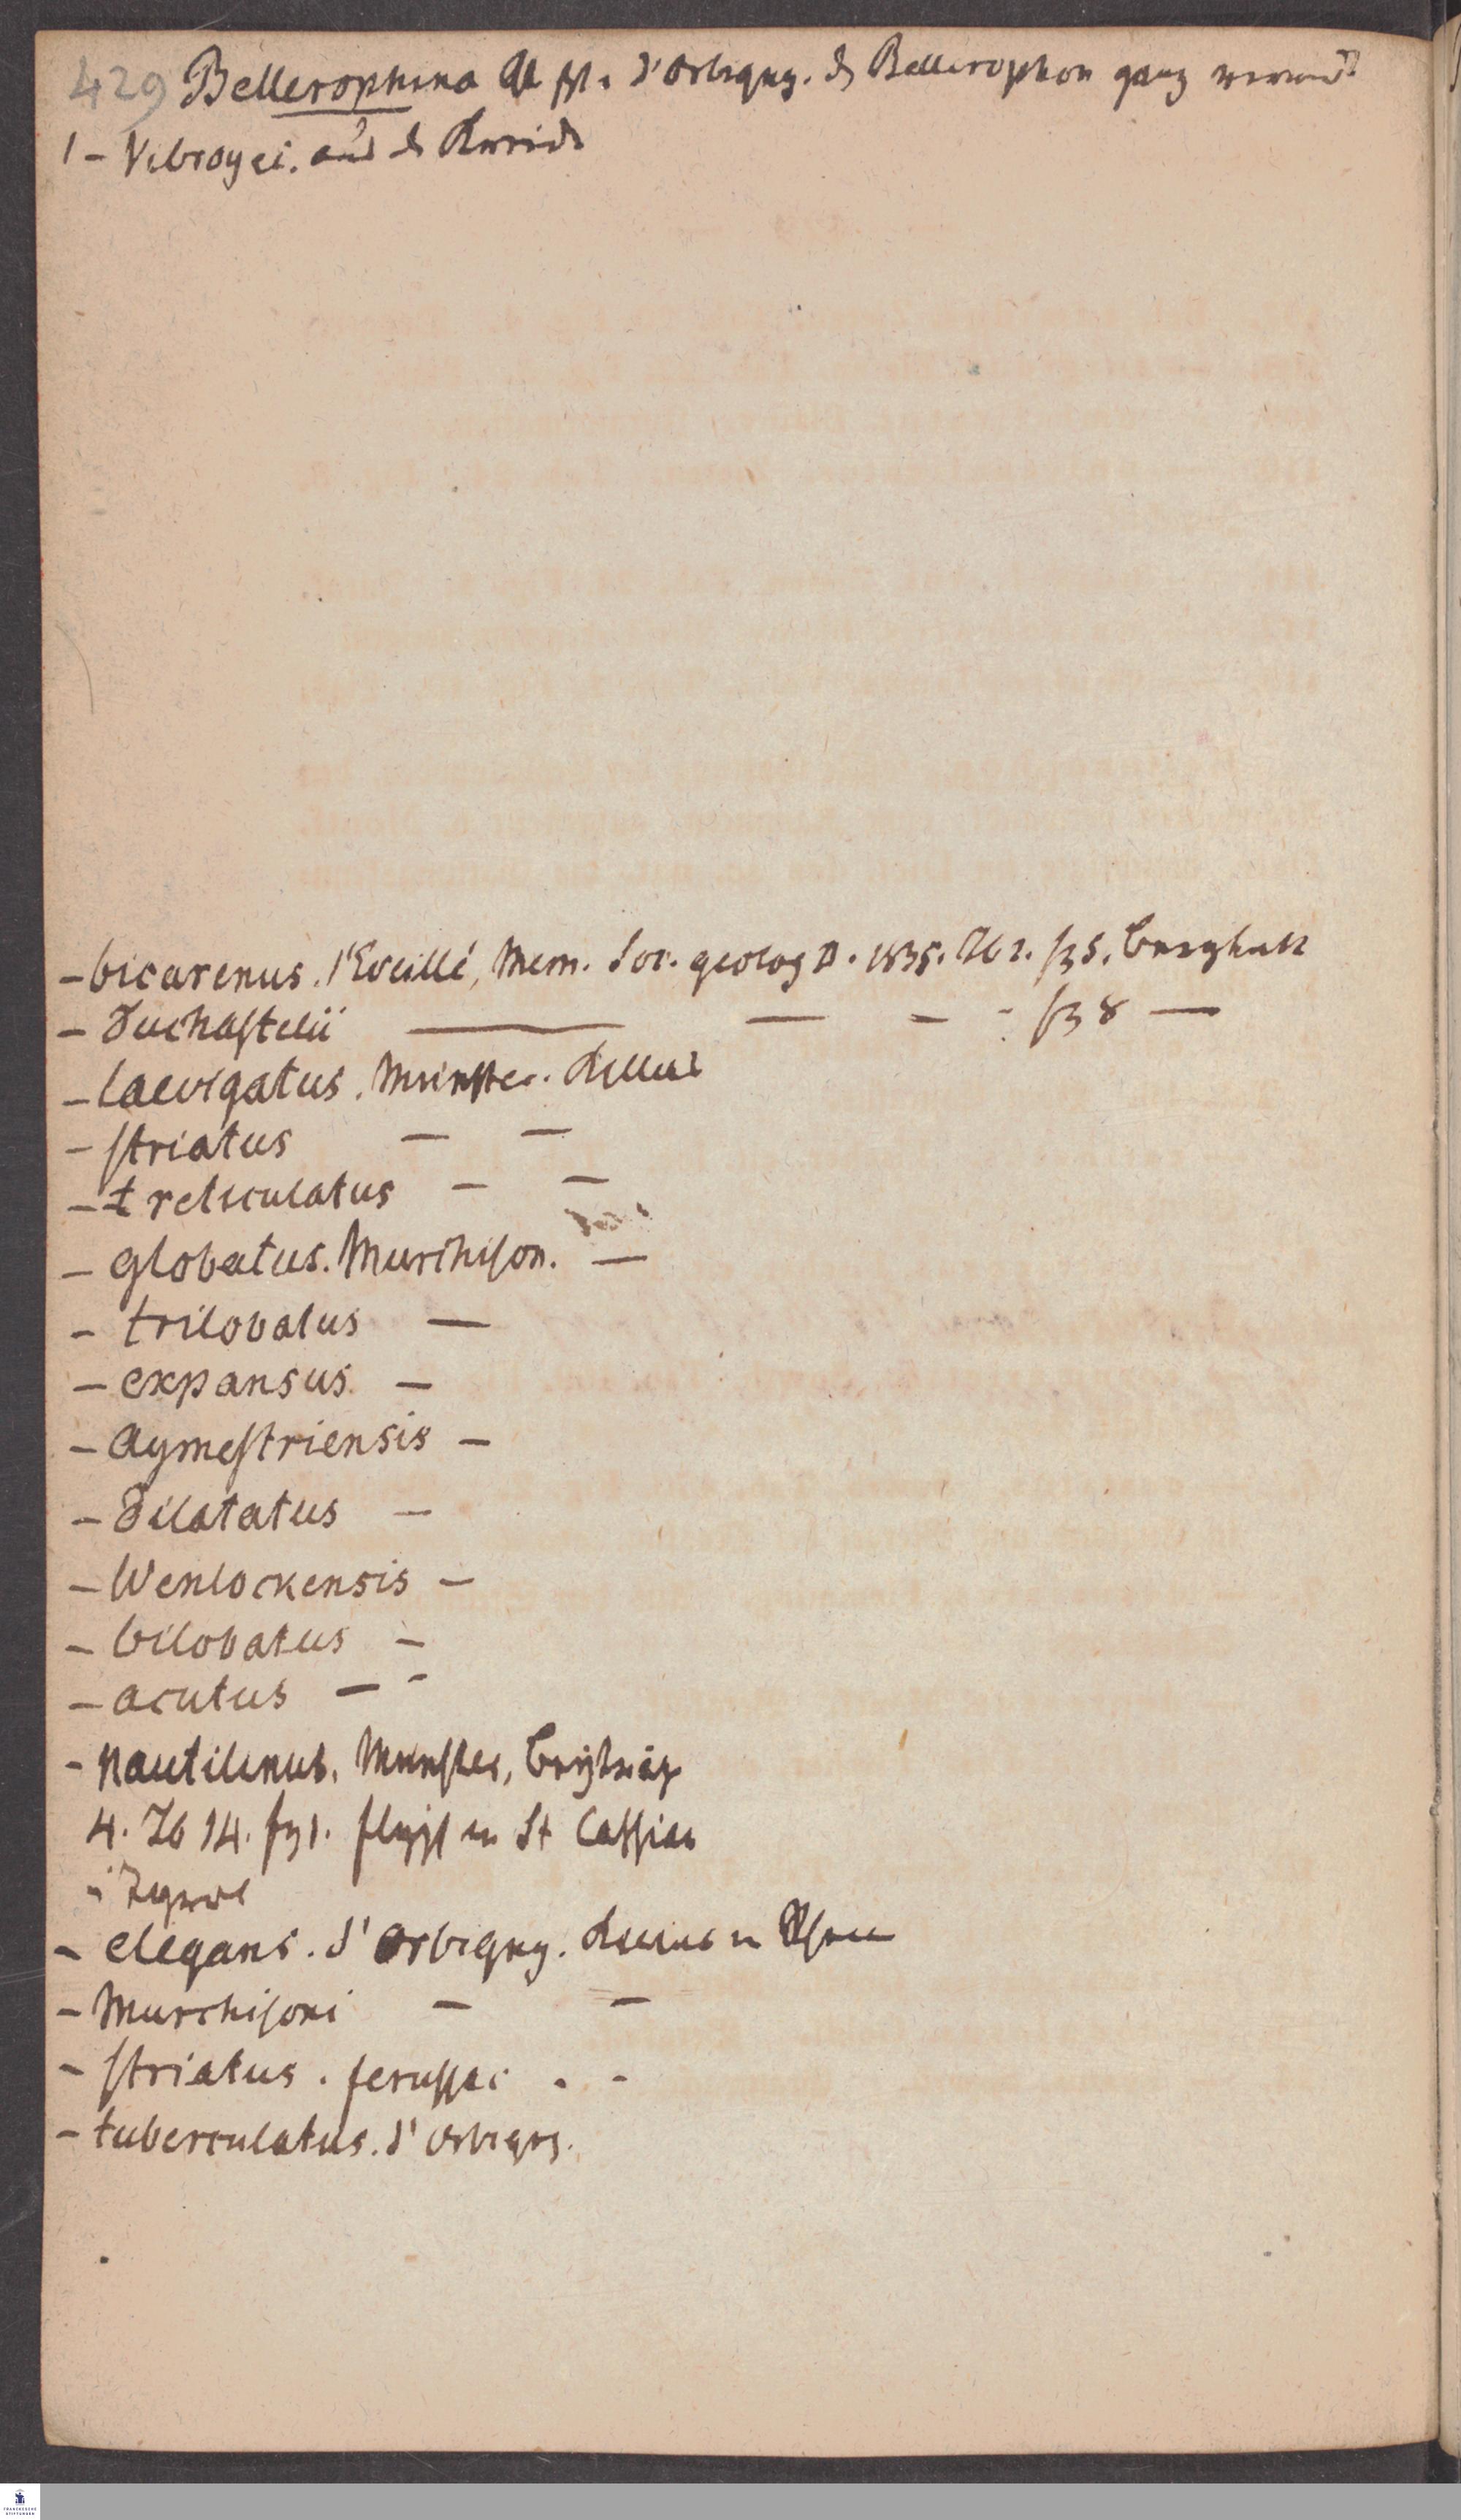 429 Bellerophina d'Orbigny. d Bellerophon ganz verwandt
1 - Vibrayei. aus d Kreide
- bicarenus. l'Eveillé, Mem. Soc. geolog II. 1835. Tb 2. fg 5. Bergkalk
- Duchastelii — — — - fg 8 —
- laevigatus. Münster.
- striatus — —
- reticulatus — —
- globatus. Murchison. —
- trilobatus —
- expansus. —
- Aymestriensis —
- dilatatus —
- Wenlockensis —
- bilobatus —
- acutus — -
- nautilinus. Münster, Beyträge
4. Tb 14. fg 1. St Cassian
i Tyrol
- elegans. d'Orbigny.
- Murchisoni — —
- striatus. ferussac - -
- tuberculatus. d'Orbigny.
FRANCKESCHE
STIFTUNGEN